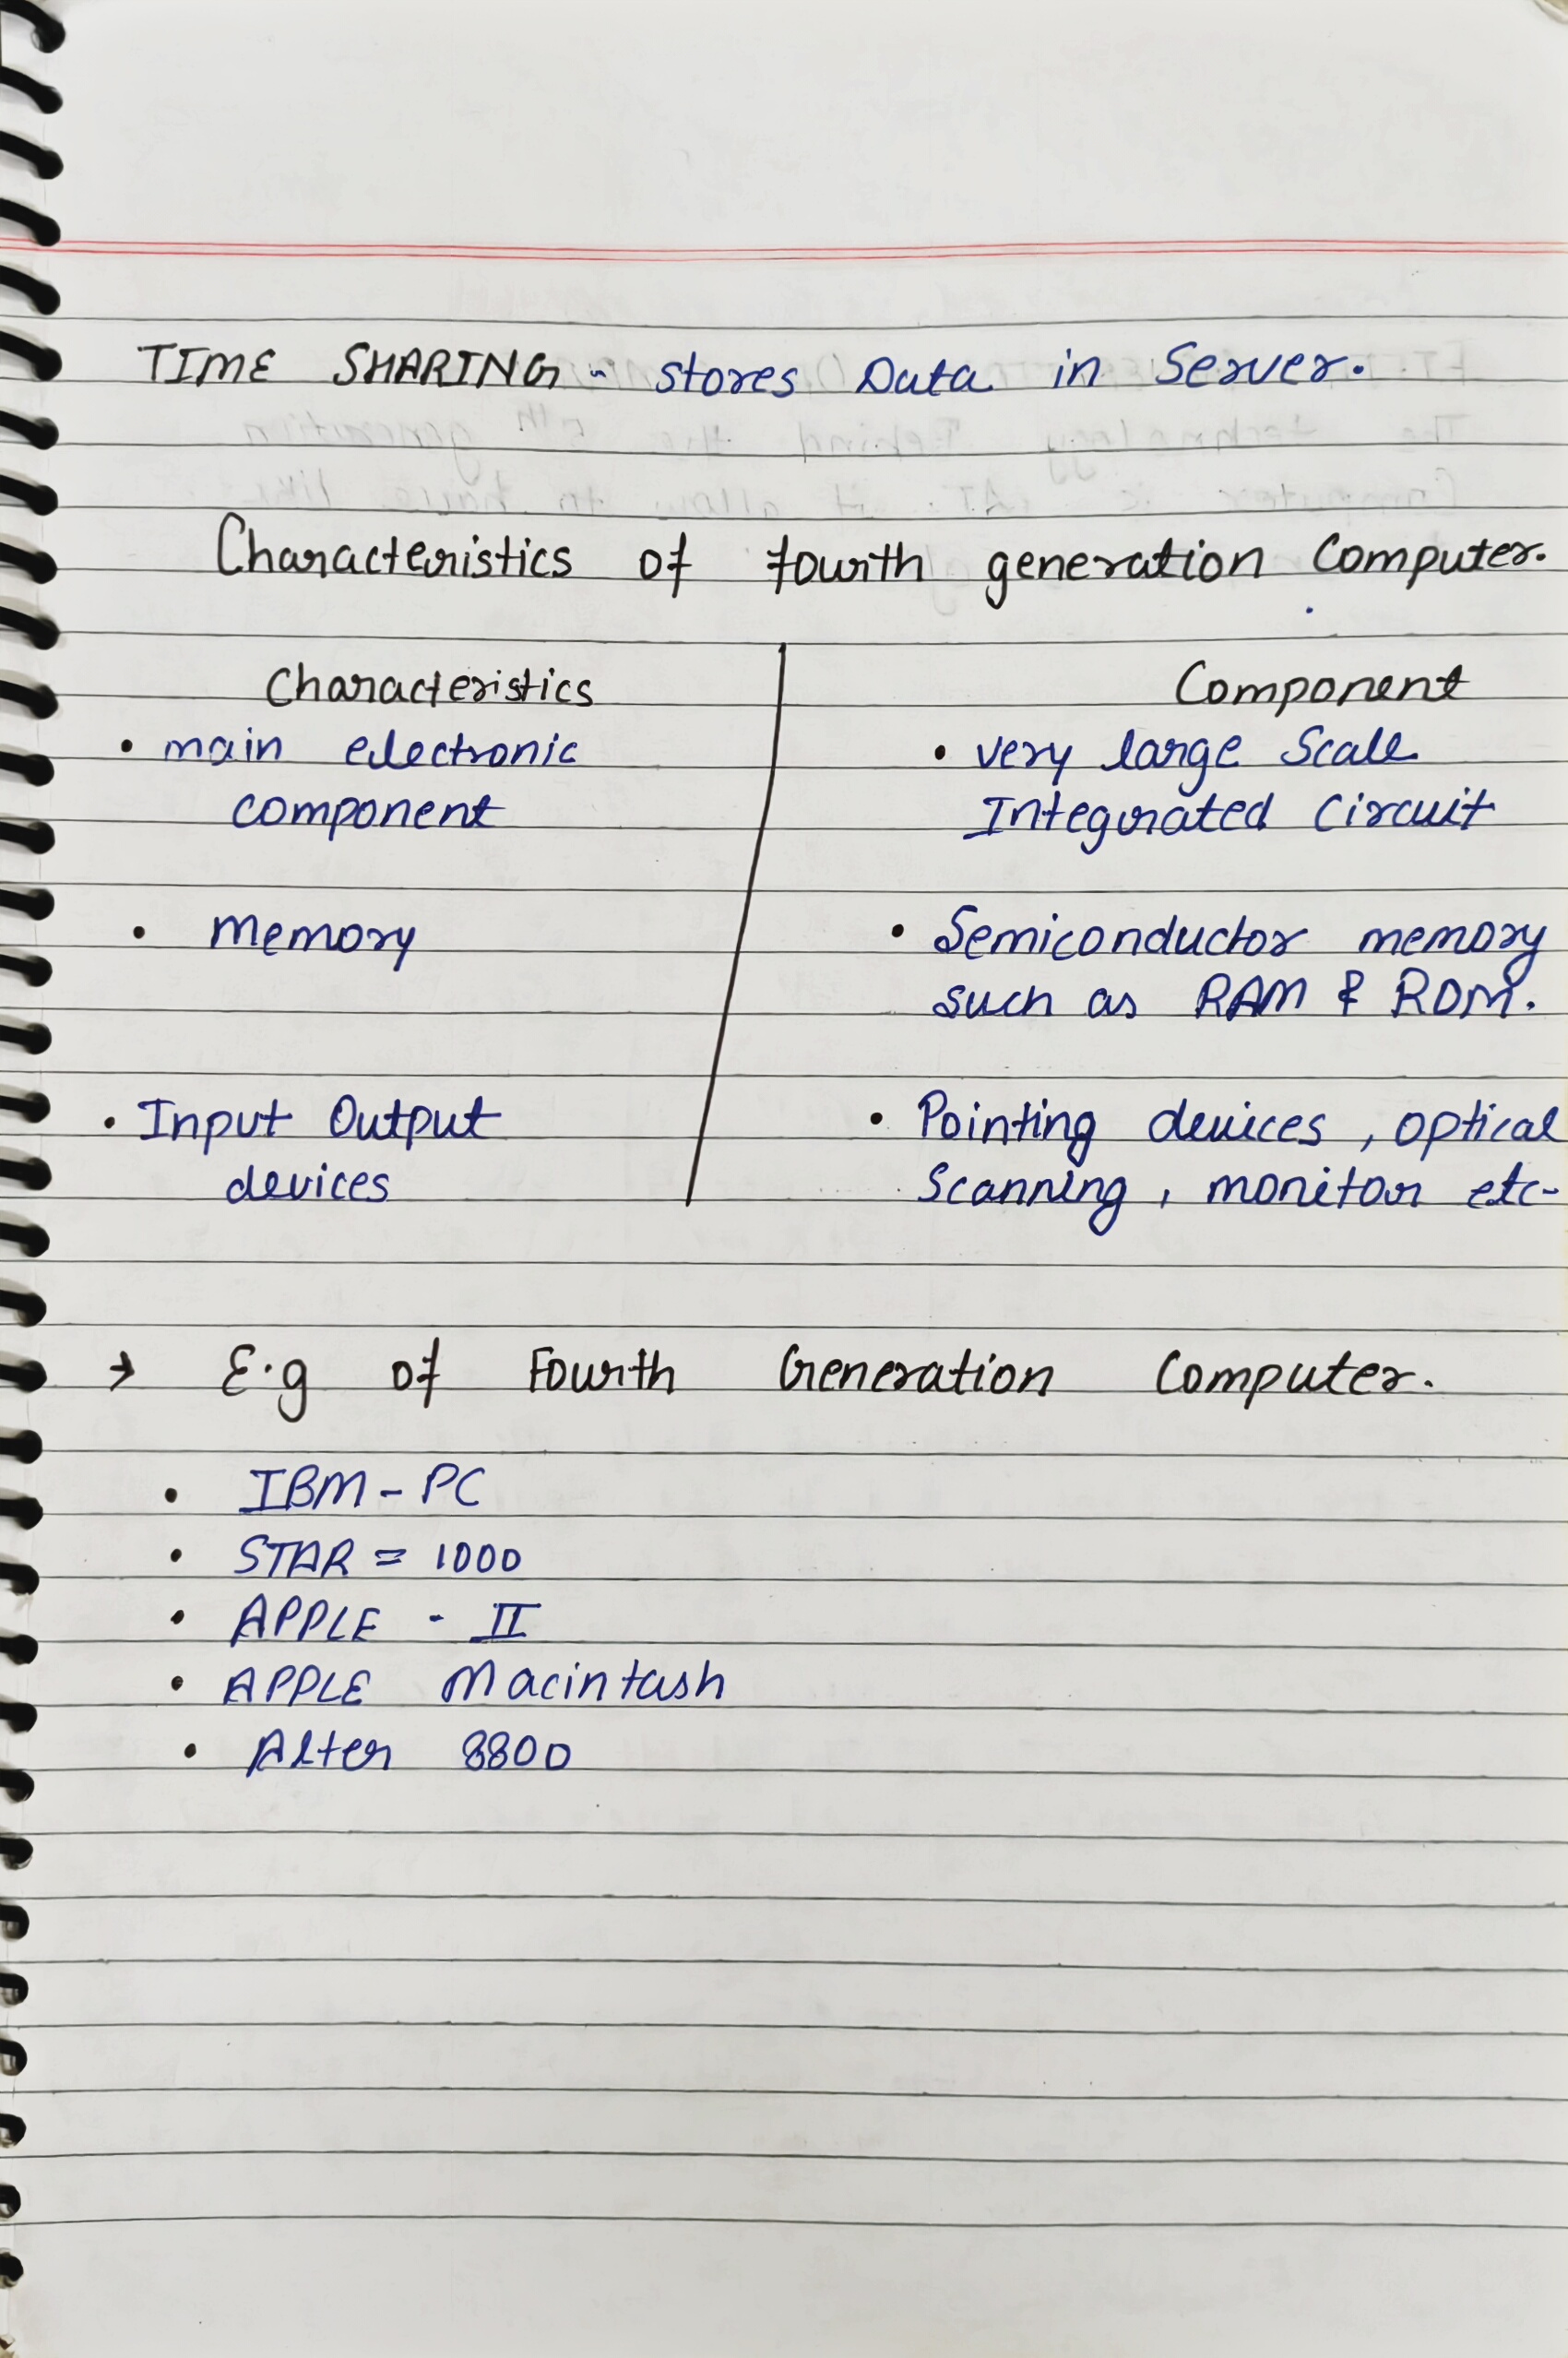 TIME SHARING - stores Data in Server.
Characteristics of fourth generation Computer.
Characteristics Component
• main electronic • very large Scale
component Integrated Circuit
• Memory • Semiconductor memory
such as RAM & ROM.
• Input Output • Pointing devices, optical
devices Scanning, monitor etc-
→ E.g of Fourth Generation Computer.
• IBM - PC
• STAR = 1000
• APPLE - II
• APPLE Macintash
• Alter 8800